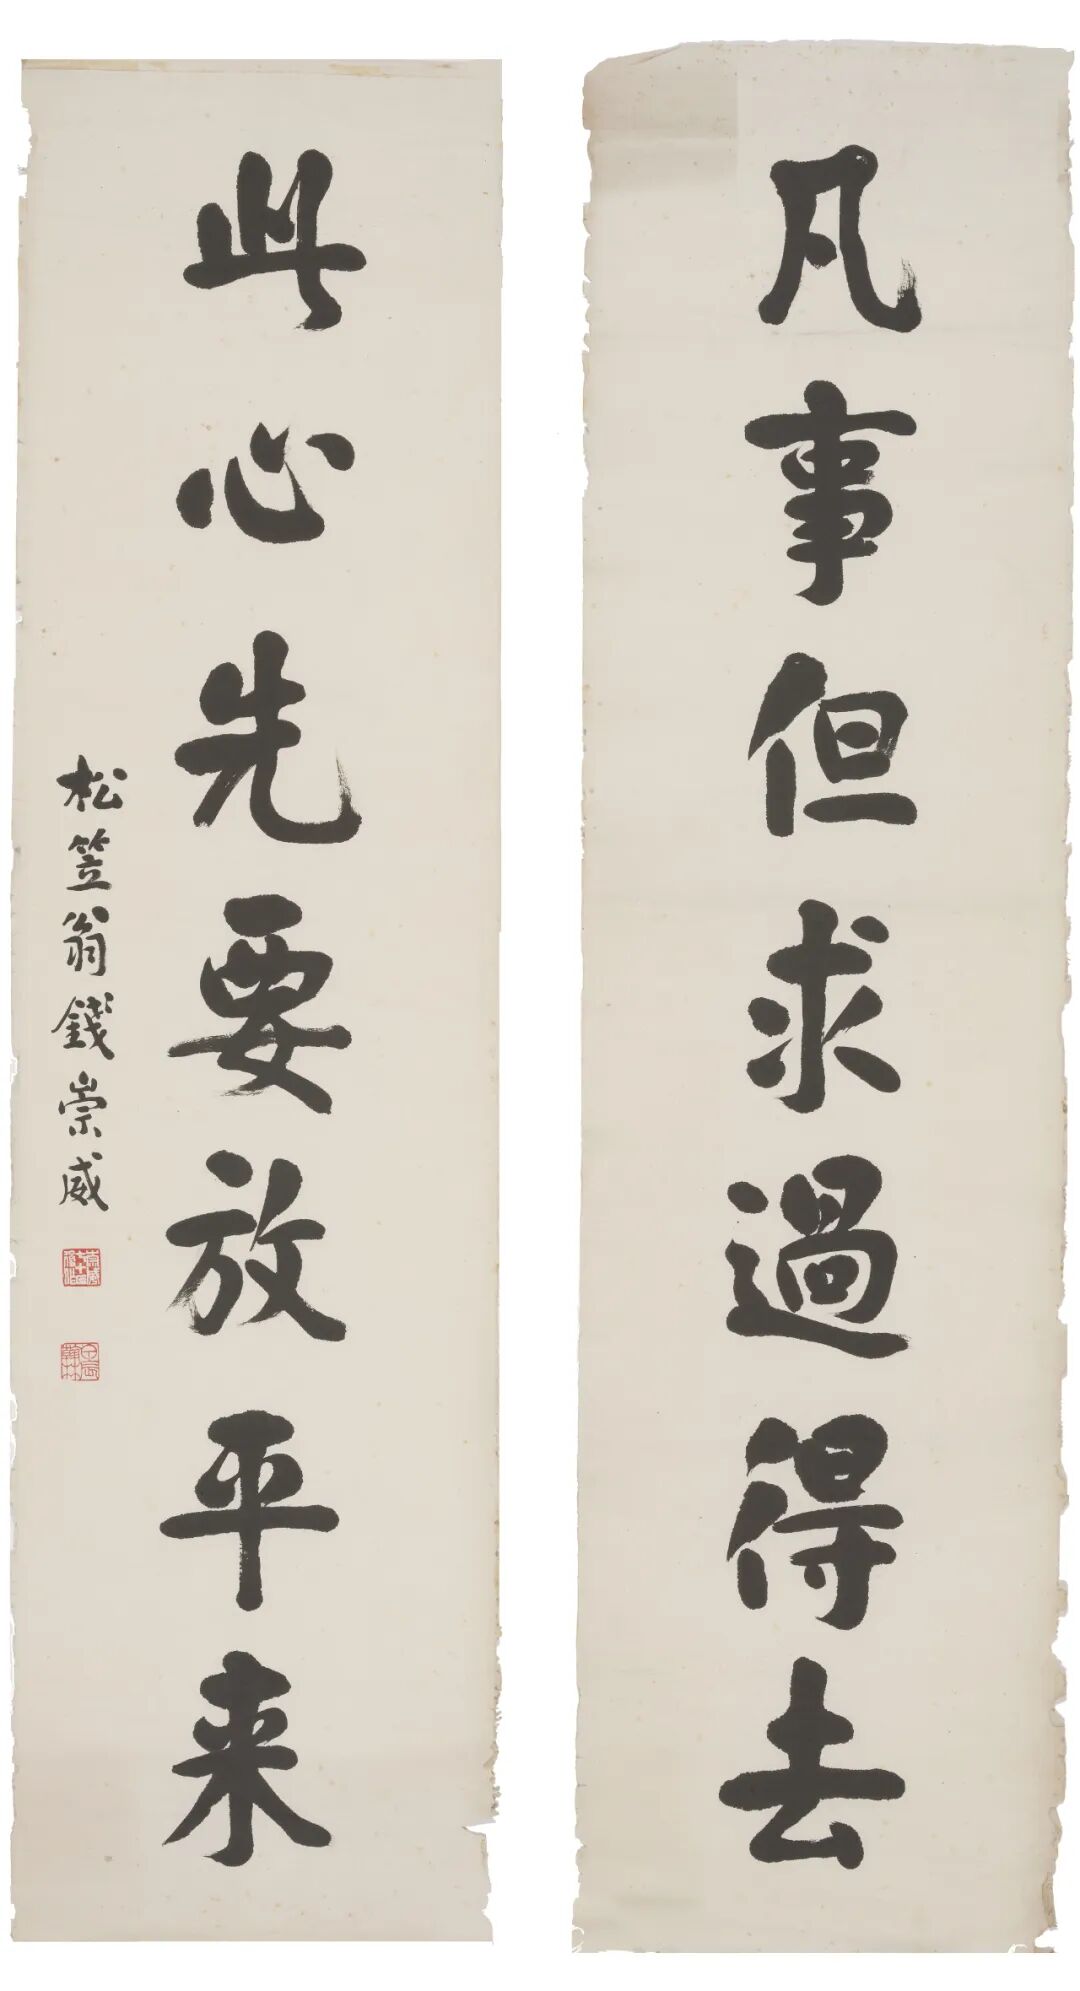 凡事但求過得去
此心先要放平来
松笠翁錢崇威